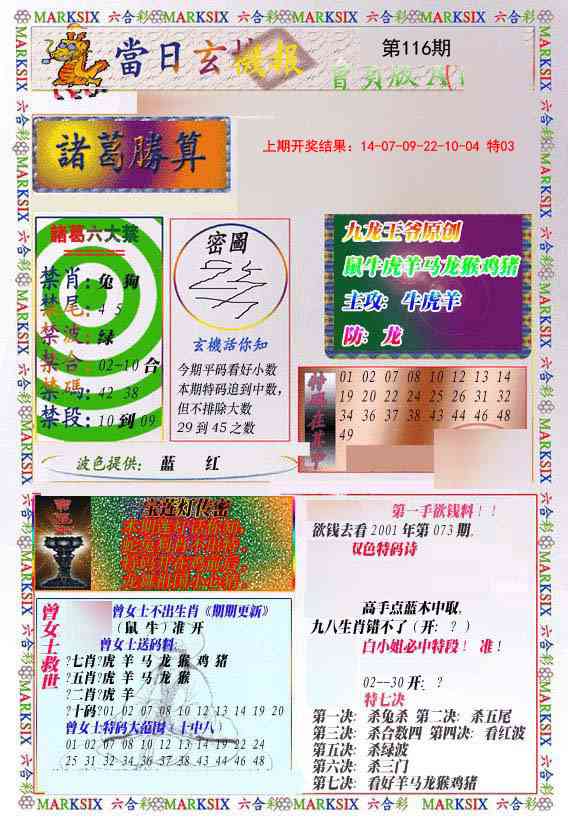 MARKSIX 六合彩 MARKSIX 六合彩 MARKSIX 六合彩 MARKSIX 六合彩
當日玄機报
第116期
諸葛勝算
上期开奖结果：14-07-09-22-10-04 特03
諸葛六大禁
禁肖：兔 狗
禁尾：4 5
禁波：绿
禁合：02-10 合
禁碼：42 38
禁段：10 到 09
密圖
玄機活你知
今期平码看好小数
本期特码追到中数，
但不排除大数
29 到 45 之数
九龙王爷原创
鼠牛虎羊马龙猴鸡猪
主攻：牛虎羊
防：龙
01 02 07 08 10 12 13 14
19 20 22 24 25 26 31 32
34 36 37 38 43 44 46 48
49
波色提供：蓝 红
宝莲灯传密
第一手欲钱料！！
欲钱去看 2001 年第 073 期。
双色特码诗
高手点蓝木中取，
九八生肖错不了（开：？）
白小姐必中特段！ 准！
02--30 开：？
特七决
第一决：杀兔杀 第二决：杀五尾
第三决：杀合数四 第四决：看红波
第五决：杀绿波
第六决：杀三门
第七决：看好羊马龙猴鸡猪
曾女士救世
曾女士不出生肖《期期更新》
（鼠 牛）准 开
曾女士送码料:
?七肖?虎 羊 马 龙 猴 鸡 猪
?五肖?虎 羊 马 龙 猴
?二肖?虎 羊
?十码?01 02 07 08 10 12 13 14 19 20
曾女士特码大范围（十中八）
01 02 07 08 10 12 13 14 19 22 24
25 31 32 34 36 37 38 43 44 46 48
MARKSIX 六合彩 MARKSIX 六合彩 MARKSIX 六合彩 MARKSIX 六合彩